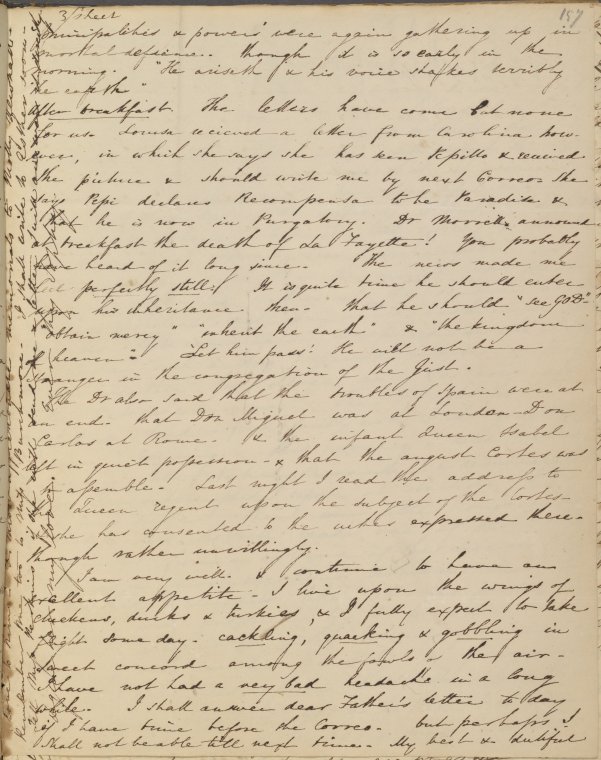 3/ Sheet
157
"principalities & powers" were again gathering up in
mortal defiance. though it is so early in the
morning. "He ariseth & his voice shakes terribly
the earth"
After breakfast. The letters have come but none
for us. Louisa recieved a letter from Carolina how-
ever, in which she says she has seen Pepillo & recieved
the picture & should write me by next Correo. She
says Pepi declares Recompensa to be Paradise &
that he is now in Purgatory. Dr Morrell announced
at breakfast the death of La Fayette! You probably
have heard of it long since. The news made me
feel perfectly still. It is quite time he should enter
upon his inheritance then. that he should "see GOD"-
"obtain mercy" "inherit the earth" & "the kingdom
of heaven". Let him pass! He will not be a
stranger in the congregation of the Just.
The Dr also said that the troubles of Spain were at
an end. that Don Miguel was at London - Don
Carlos at Rome. & the infant Queen Isabel
left in quiet possession - & that the august Cortes was
to assemble. Last night I read the address to
the Queen regent upon the subject of the Cortes
& she has consented to the wishes expressed there-
though rather unwillingly.
I am very well. & continue to have an
excellent appetite. I live upon the wings of
chickens, ducks & turkies, & I fully expect to take
flight some day. cackling, quacking & gobbling in
sweet concord among the fowls of the air.
I have not had a very bad headache in a long
while. I shall answer dear Father's letter to day
if I have time before the Correo. but perhaps I
shall not be able till next time. My best & dutiful